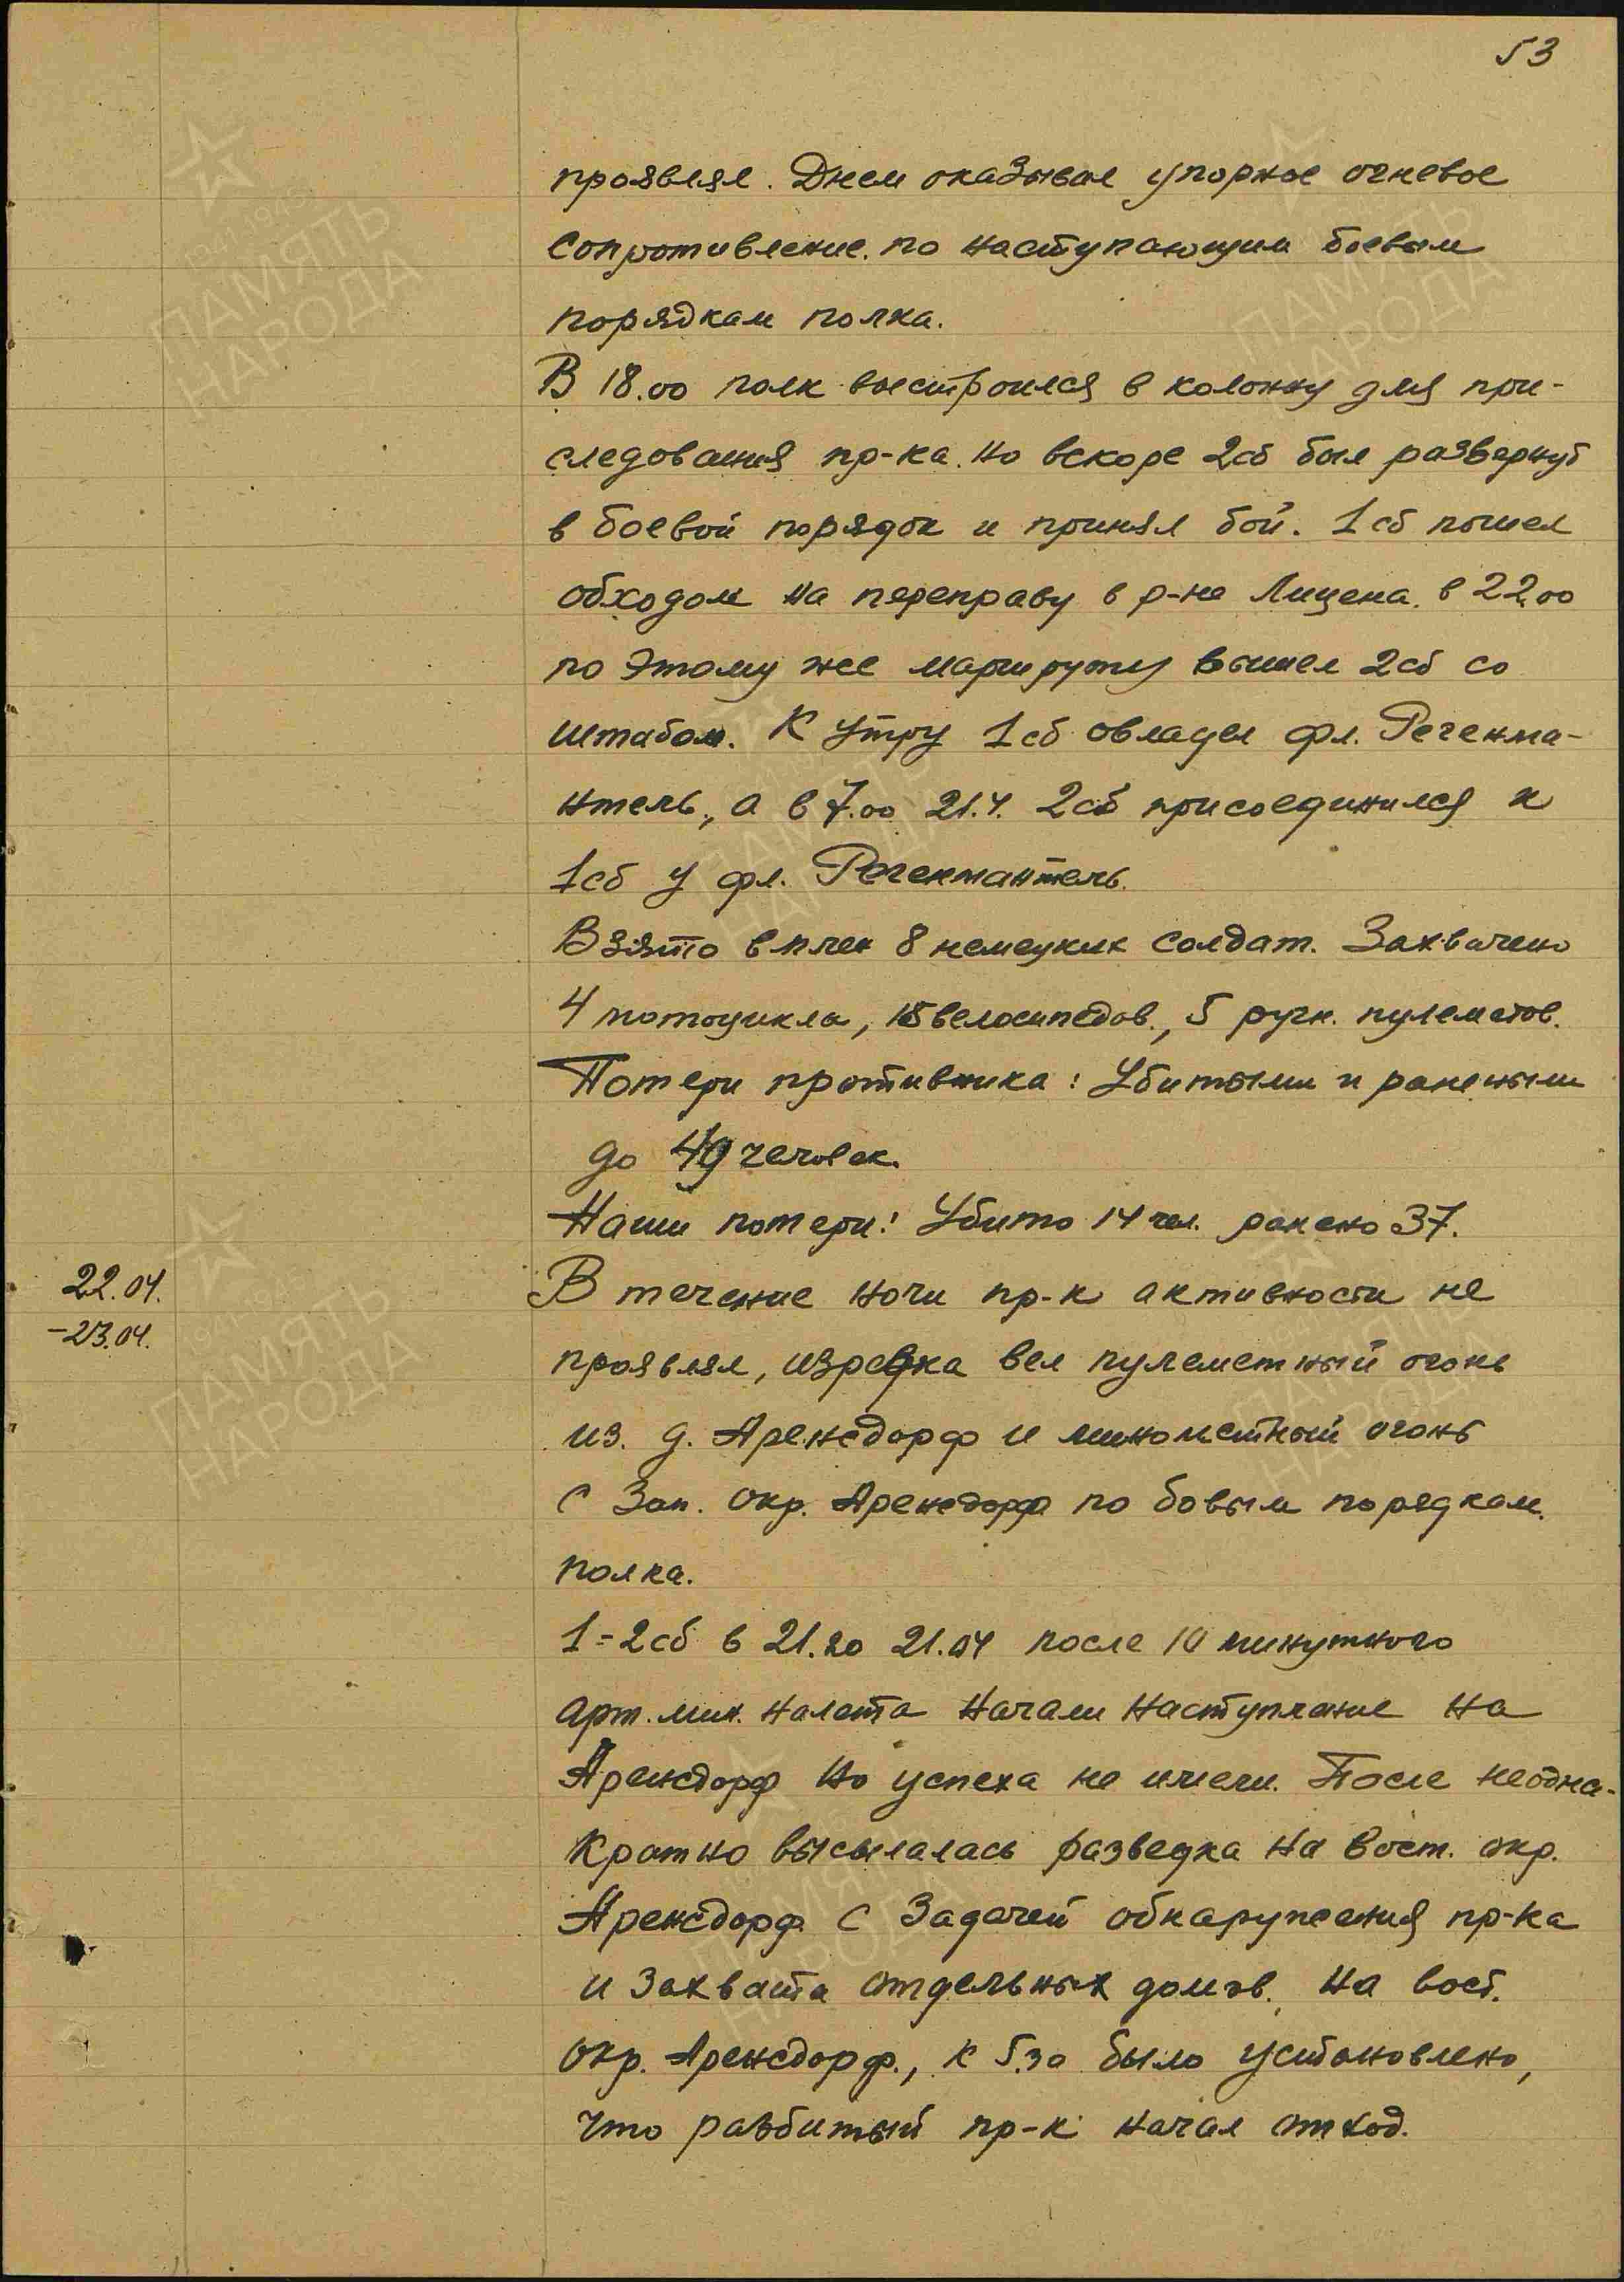 53
проявлял. Днем оказывал упорное огневое
сопротивление. по наступающим боевым
порядкам полка.
В 18.00 полк выстроился в колонну для при-
следования пр-ка. но вскоре 2сб был развернут
в боевой порядок и принял бой. 1сб пошел
обходом на переправу в р-не Лицена. в 22.00
по этому же маршруту вышел 2сб со
штабом. К утру 1сб овладел фл. Регенма-
нтель, а в 7.00 21.4. 2сб присоединился к
1сб у фл. Регенмантель.
Взято в плен 8 немецких солдат. Захвачено
4 мотоцикла, 15 велосипедов., 5 ручн. пулеметов.
Потери противника: Убитыми и ранеными
до человек.
Наши потери: Убито 14 чел. ранено 37.
22.04.
-23.04.
В течение ночи пр-к активности не
проявлял, изредка вел пулеметный огонь
из. д. Аренсдорф и минометный огонь
с Зап. окр. Аренсдорф по бовым порядкам.
полка.
1=2сб в 21.20 21.04 после 10 минутного
арт. мин. налета начали наступление на
Аренсдорф но успеха не имели. После неодно-
кратно высылалась разведка на вост. окр.
Аренсдорф с задачей обнаружения пр-ка
и захвата отдельных домов. на вост.
окр. Аренсдорф., к 5.30 было установлено,
что разбитый пр-к начал отход.
ПАМЯТЬ
НАРОДА
ПАМЯТЬ
НАРОДА
ПАМЯТЬ
НАРОДА
ПАМЯТЬ
НАРОДА
ПАМЯТЬ
НАРОДА
ПАМЯТЬ
НАРОДА